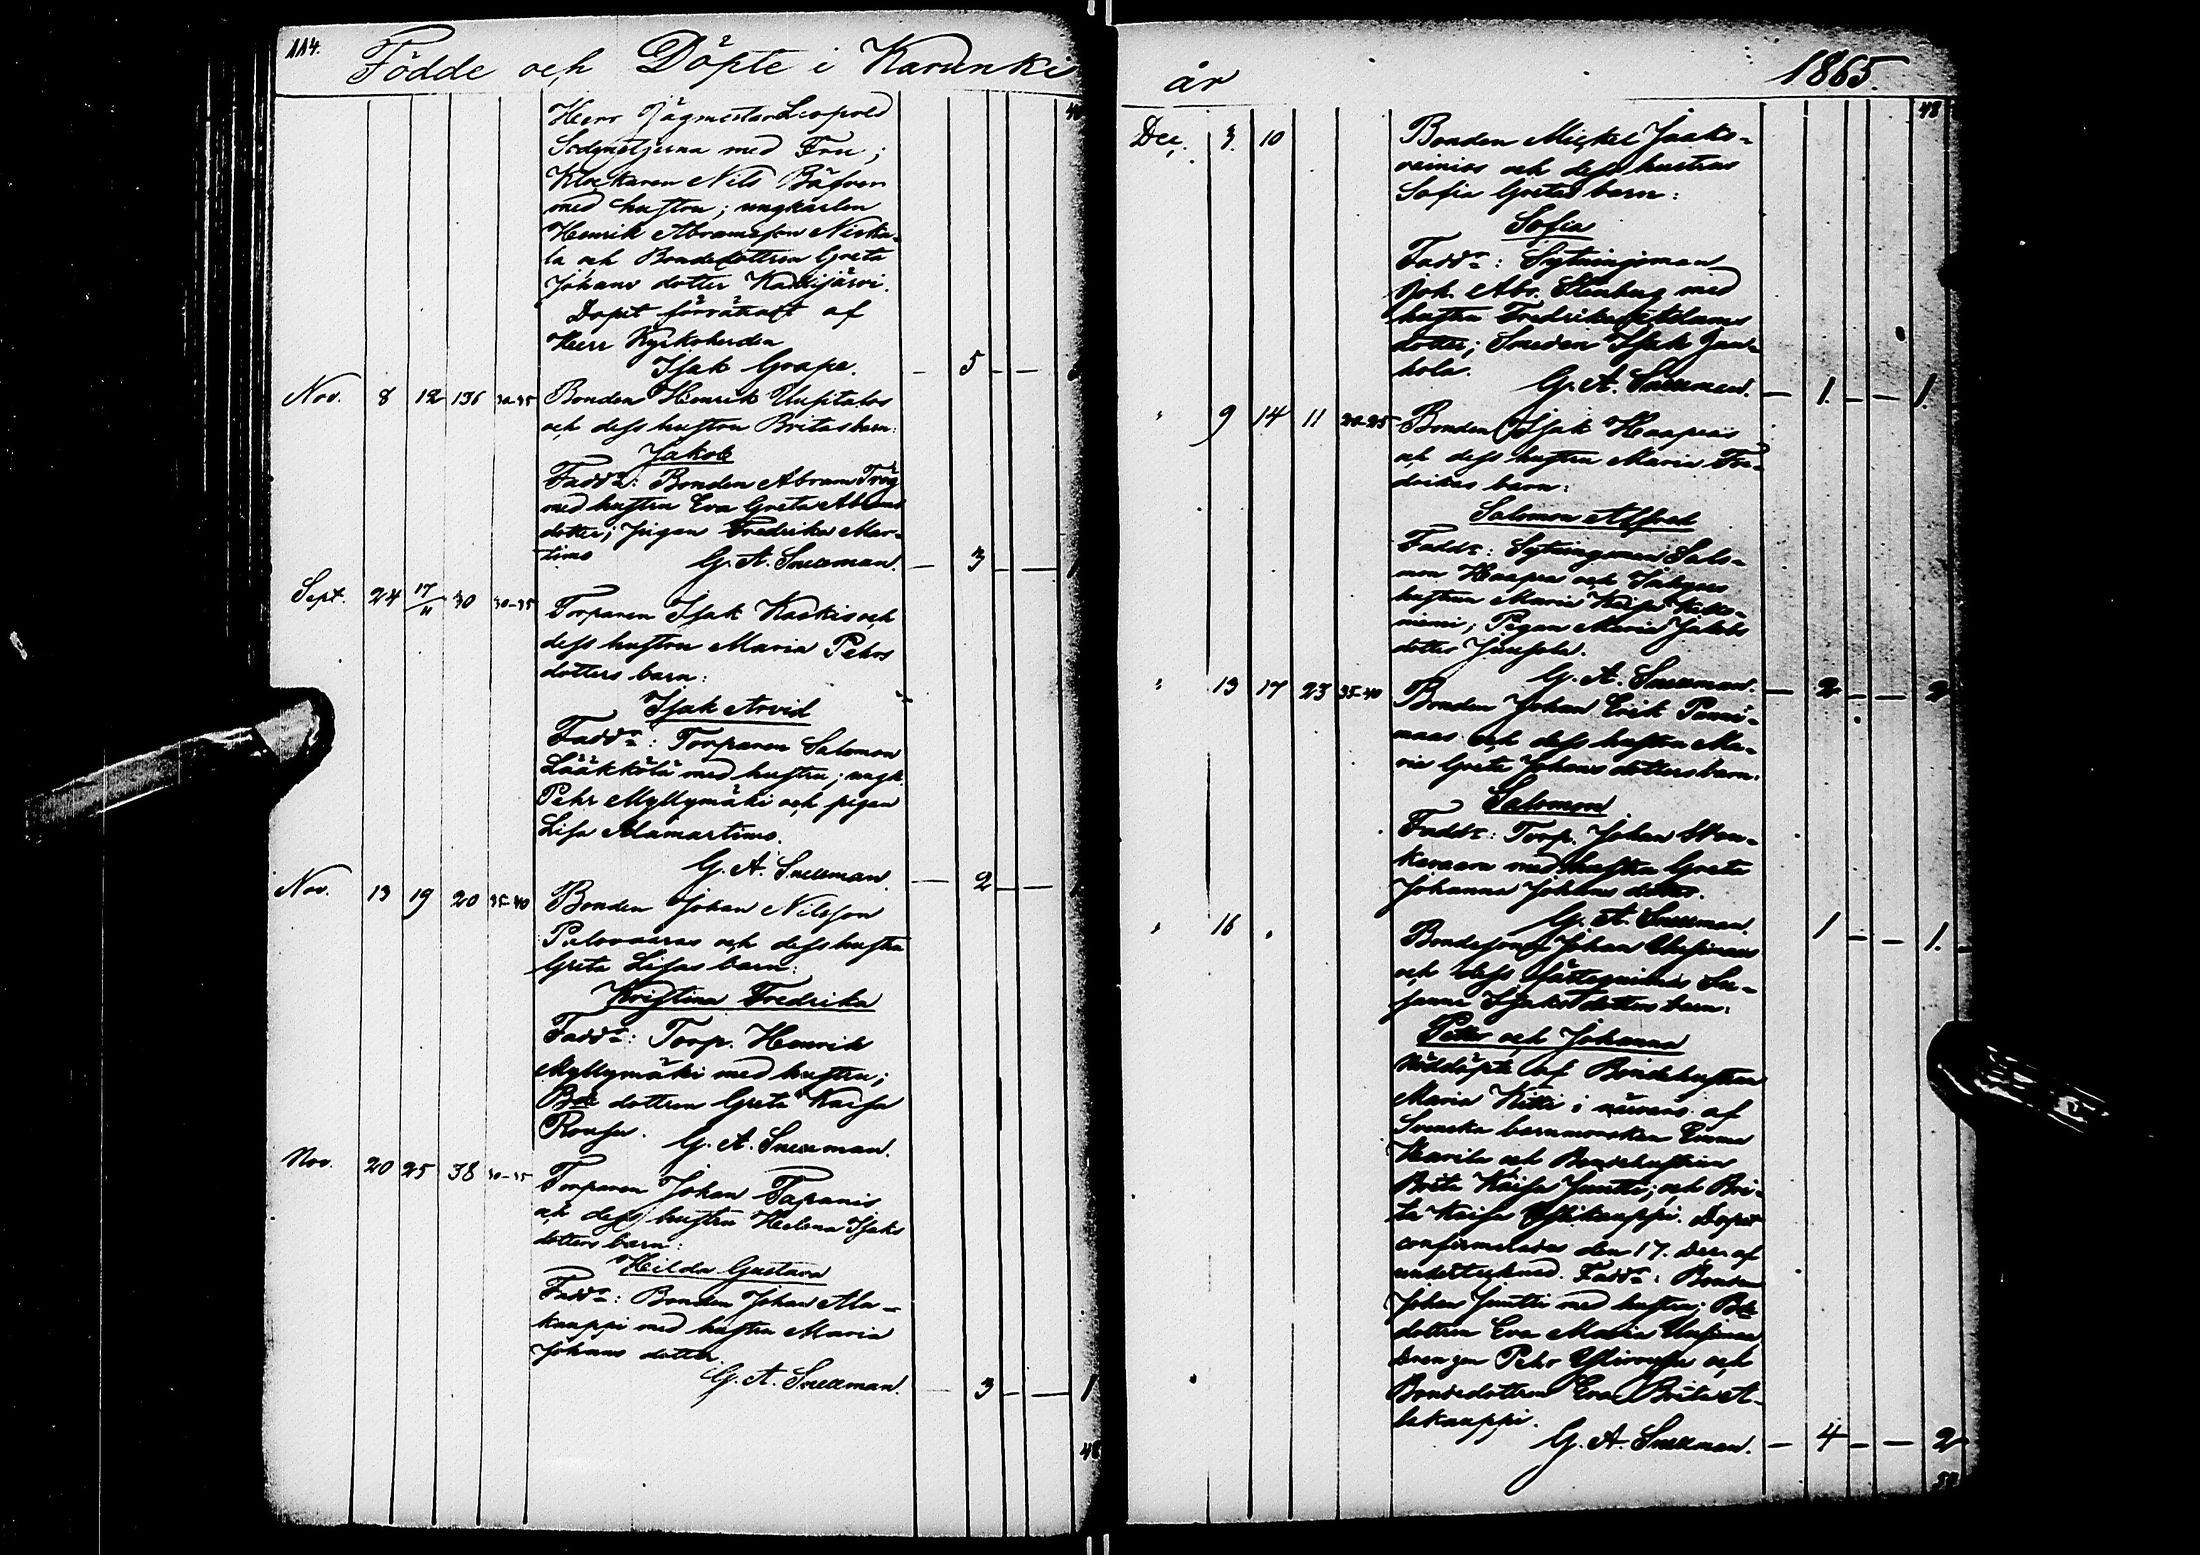 114.
Födde och Döpte i Karunki
Herr Jägmestar Leopold
med Fru;
Klockaren Nils Bäfver
med hustru; ungkarlen
Henrik Abramsson Niska-
la och Bondedottren Greta
Johans dotter Kaakijärvi.
Döpt af
Herr Kyrkoherden
Isak Grape. — 5 — —
Nov. 8 12 136 30-35 Bonden Henrik Uusitalos
och dess hustru Britas barn:
Jakob
Faddr: Bonden Abram Trög
med hustru Eva Greta Abrams
dotter; Pigan Fredrika Mar-
timo G. A. Snellman. — 3 — — 1
Sept. 24 17/11 30 30-35 Torparen Isak Kaskis och
dess hustru Maria Pehrs
dotters barn:
Isak Arvid
Faddr: Torparen Salomon
Lääkkölä med hustru; ungk.
Pehr Myllymäki och pigan
Lisa Alamartimo.
G. A. Snellman. — 2 — — 1
Nov. 13 19 20 35-40 Bonden Johan Nilsson
Palovaaras och dess hustru
Greta Lisas barn:
Kristina Fredrika
Faddr: Torp. Henrik
Myllymäki med hustru;
Bde dottren Greta Kaisa
Rousu. G. A. Snellman.
Nov. 20 25 38 30-35 Torparen Johan Tapanis
och dess hustru Helena Isaks
dotters barn:
Hilda Gustava
Faddr: Bonden Johan Ala-
kauppi med hustru Maria
Johans dotter
G. A. Snellman. — 3 — — 1
48
år 1865.
48
Dec. 3. 10 Bonden Mickel Jaako-
vainios och dess hustrus
Sofia Gretas barn:
Sofia
Faddr: Sytningsman
Joh. Abr. Stenberg med
hustru Fredrika Adams
dotter; Smeden Isak Jun-
kola. G. A. Snellman. — 1. — — 1.
" 9 14 11 20-25 Bonden Isak Haapas
och dess hustru Maria Fre-
drikas barn:
Salomon Alfred
Faddr: Sytningsman Salo-
mon Haapa och
hustrun Maria Kaisa
niemi; Pigan Maria Jakobs
dotter
G. A. Snellman. — 2 — — 2
" 13 17 23 35-40 Bonden Johan Erik
naas och dess hustru Ma-
ria Greta Johans dotters barn:
Salomon
Faddr: Torp. Johan
med hustru Greta
Johanna Johans dotter.
G. A. Snellman. 1 — — 1.
" 16 " Bondesonen Johan Uusimaas
och dess fästeqvinnas Su-
sanna Isaks dotters barn:
Petter och Johanna
Nöddöpte af Bondehustrun
Maria Kitti i närvaro af
Svenska barnmorskan Emma
och Bondehustrun
Brita Kaisa Juntti; och Bri-
ta Kaisa Ylikauppi. Dopet
confirmerades den 17. Dec. af
undertecknad. Faddr: Bonden
Johan Juntti med hustru; Bde
dottren Eva Maria Uusimaa
Drengen Pehr Ylirousu och
Bondedottren Eva Brita A-
lakauppi.
G. A. Snellman. — 4 — — 2